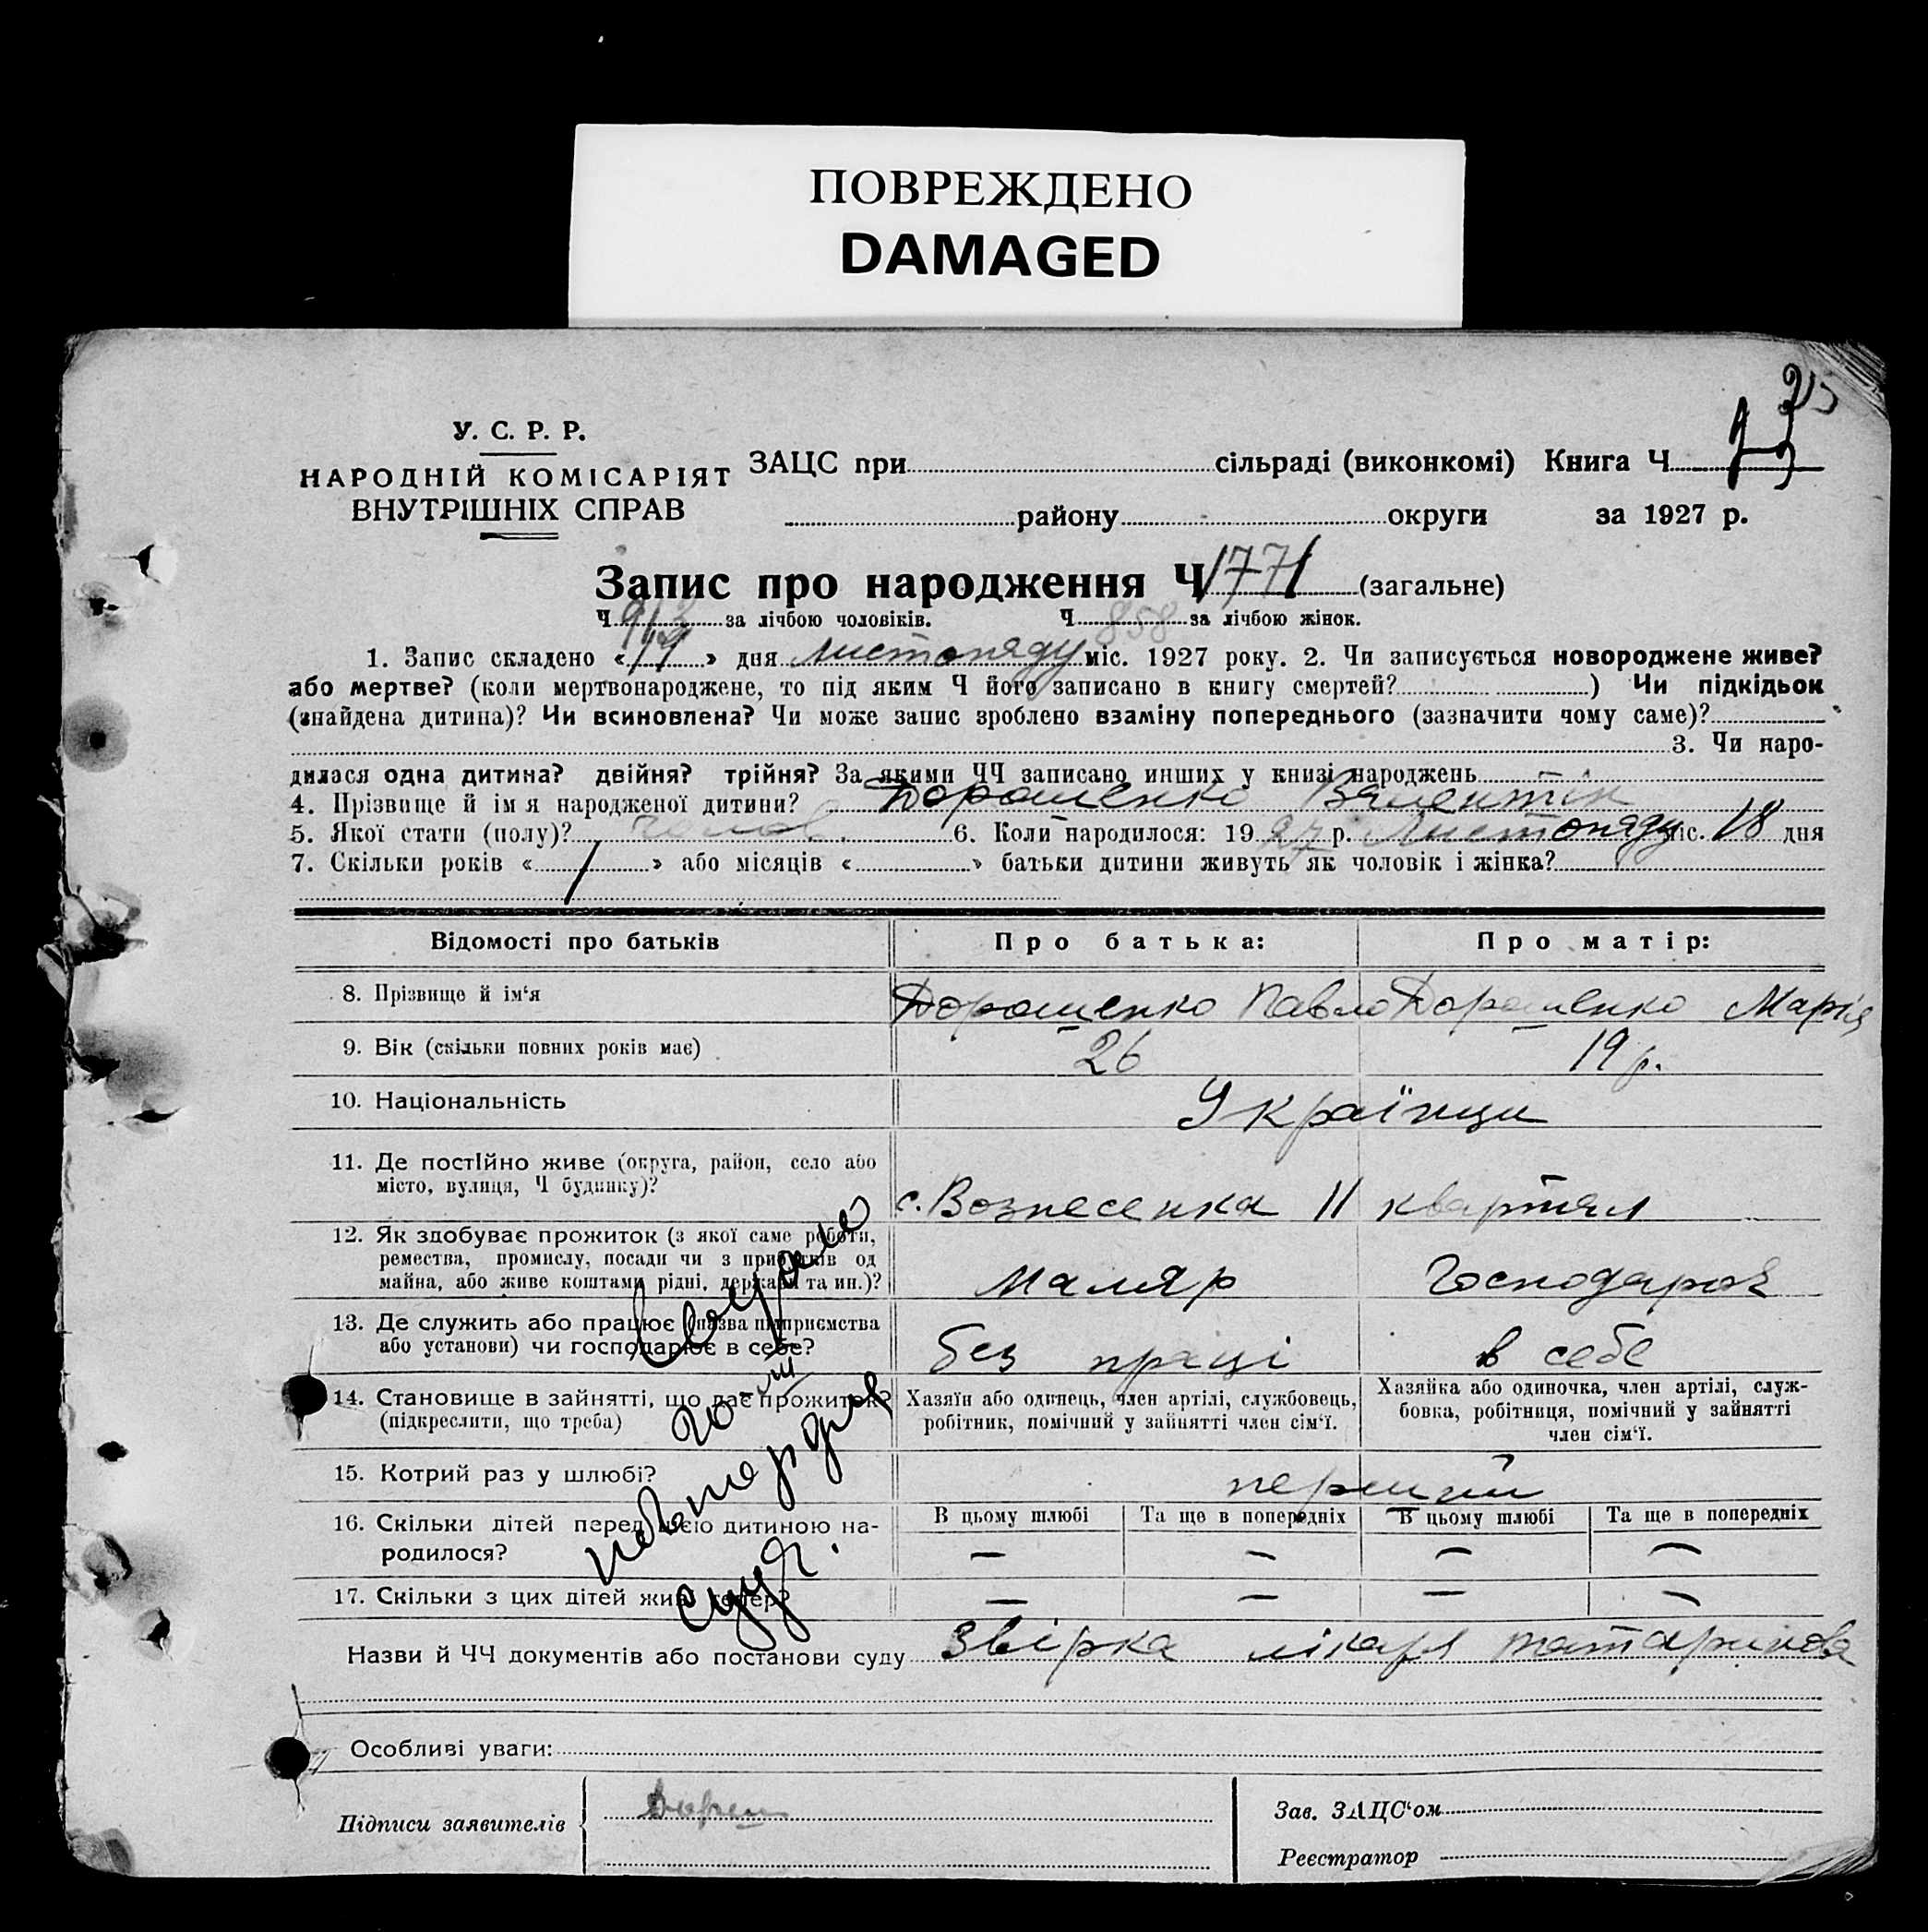 ПОВРЕЖДЕНО
DAMAGED
У. С. Р. Р.
НАРОДНІЙ КОМІСАРІЯТ
ВНУТРІШНІХ СПРАВ
ЗАЦС при сільраді (виконкомі) Книга Ч
району округи за 1927 р.
Запис про народження Ч 1771 (загальне)
Ч 913 за лічбою чоловіків. Ч 858 за лічбою жінок.
1. Запис складено « » дня листопаду міс. 1927 року. 2. Чи записується новороджене живе?
або мертве? (коли мертвонароджене, то під яким Ч його записано в книгу смертей? ) Чи підкідьок
(знайдена дитина)? Чи всиновлена? Чи може запис зроблено взаміну попереднього (зазначити чому саме)?
3. Чи наро-
дилася одна дитина? двійня? трійня? За якими ЧЧ записано инших у книзі народжень
4. Прізвище й ім я народженої дитини? Дорошенко Валентін
5. Якої стати (полу)? чолов. 6. Коли народилося: 1927 р. Листопаду міс. 18 дня
7. Скільки років « 1 » або місяців « » батьки дитини живуть як чоловік і жінка?
Відомості про батьків Про батька: Про матір:
8. Прізвище й ім‘я Дорошенко Павло Дорошенко Марія
9. Вік (скільки повних років має) 26 19 р.
10. Національність Українци
11. Де постійно живе (округа, район, село або
місто, вулиця, Ч будинку)? с. Вознесенка 11 квартал
12. Як здобуває прожиток (з якої саме роботи,
ремества, промислу, посади чи з прибутків од
майна, або живе коштами рідні, держави та ин.)? маляр Господарка
13. Де служить або працює (назва підприємства
або установи) чи господарює в себе? без праці в себе
14. Становище в зайнятті, що дає прожиток?
(підкреслити, що треба)
Хазяїн або одинець, член артілі, службовець,
робітник, помічний у зайнятті член сім‘ї.
Хазяйка або одиночка, член артілі, служ-
бовка, робітниця, помічний у зайнятті
член сім‘ї.
15. Котрий раз у шлюбі? перший
16. Скільки дітей перед цією дитиною на-
родилося?
В цьому шлюбі Та ще в попередніх В цьому шлюбі Та ще в попередніх
— — — —
17. Скільки з цих дітей живі тепер? — — — —
Назви й ЧЧ документів або постанови суду Звірка лікаря татаринова
Особливі уваги:
Підписи заявителів Дорош
Зав. ЗАЦС‘ом
Реєстратор